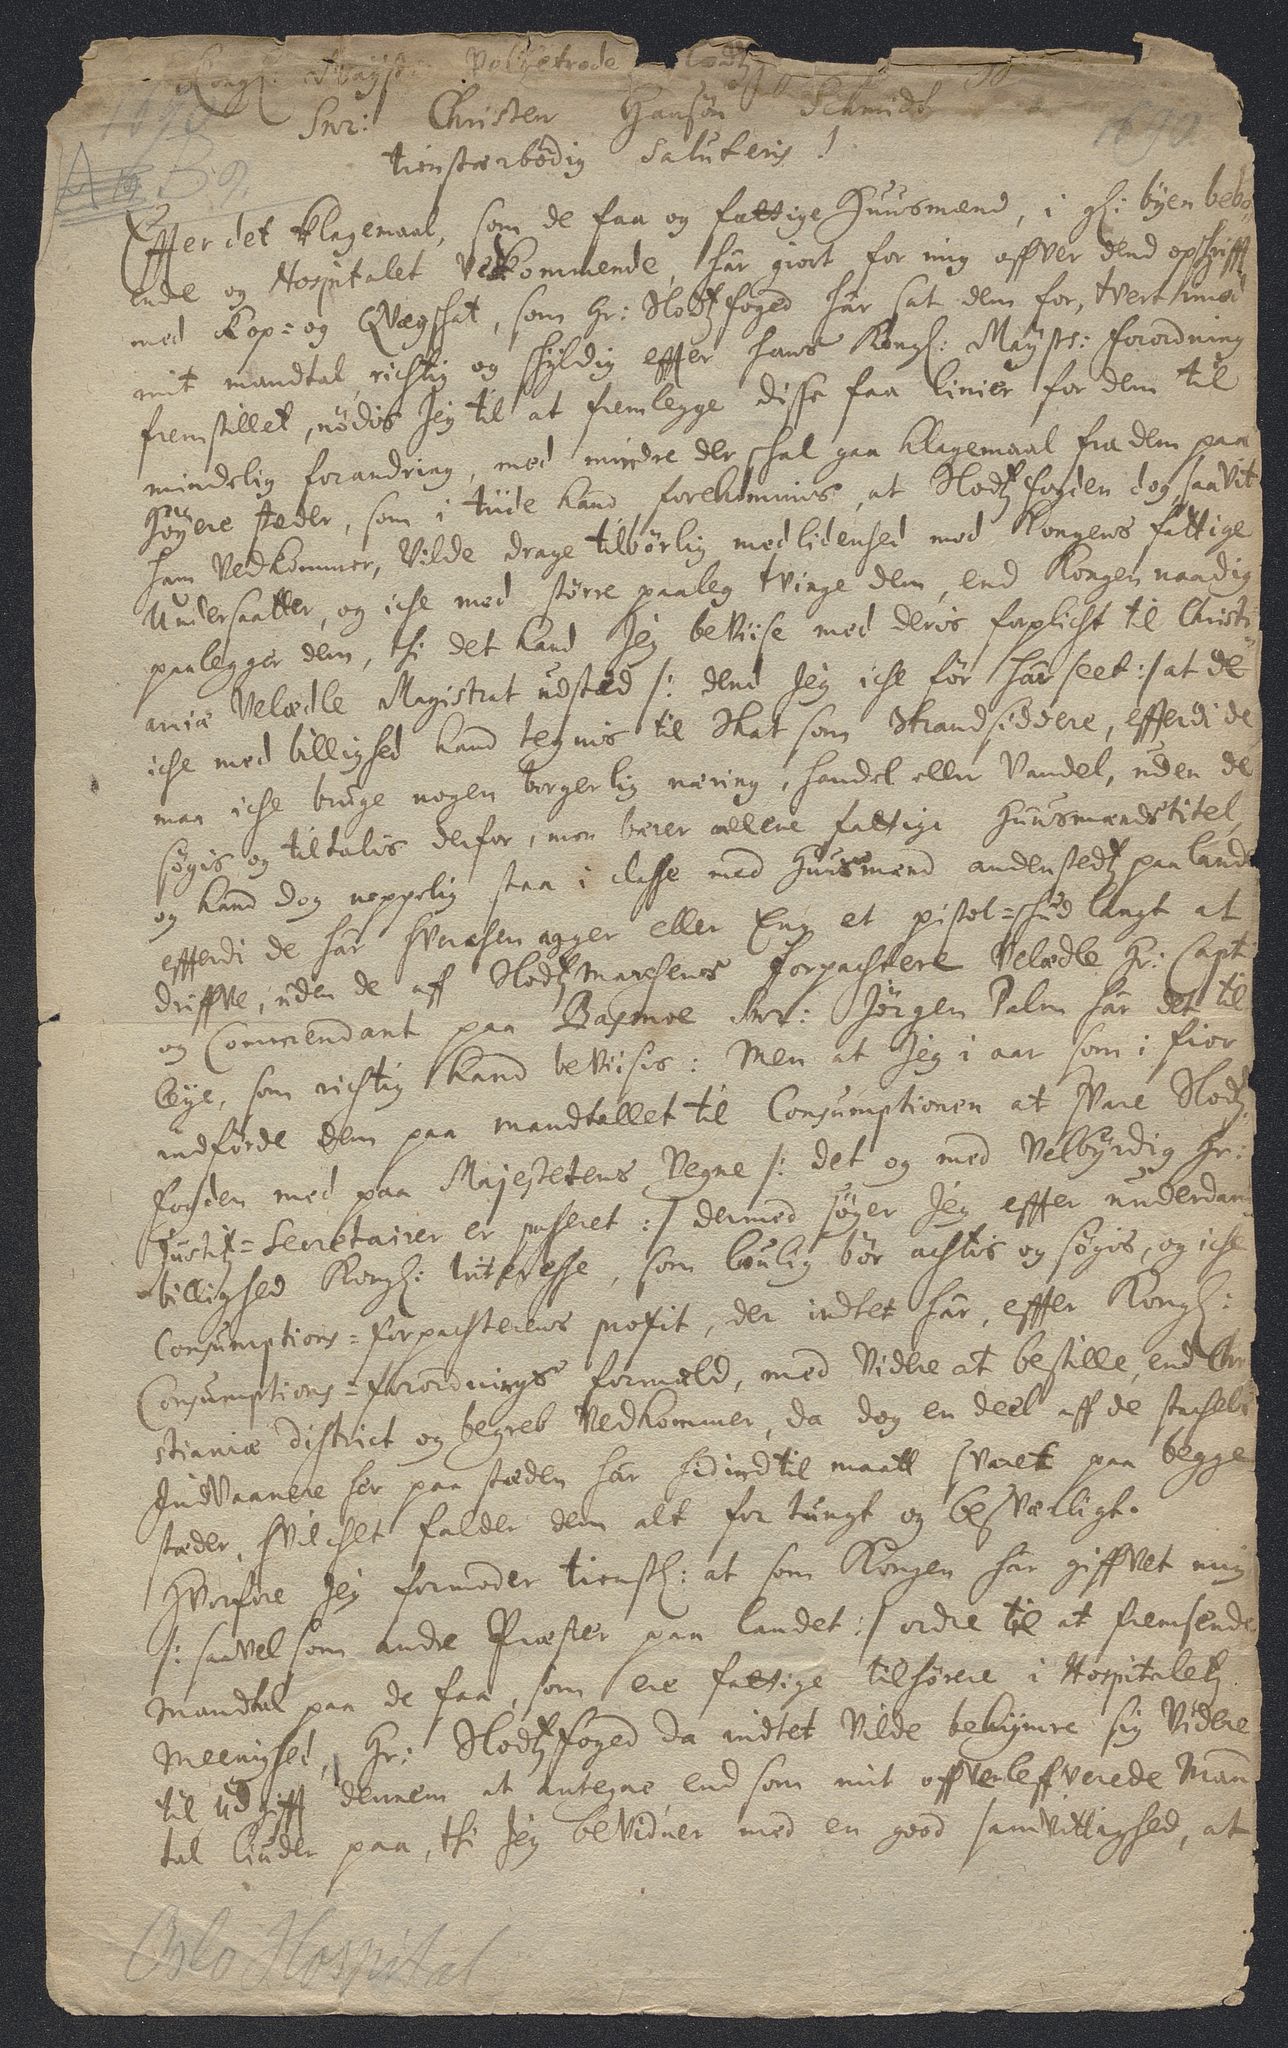 Kongl: Mayst: Velbetrode
Snr: Christen Hansøn Schmidt
1690
1690
tienstærbødig Salutem!
A 19 B 9.
Effter det klagemaal, som de faa og fattige Huusmænd, i gl: byen bebo-
ende og Hospitalet Vedkommende, har giort for mig offver dend opschrifft
med Kop= og Qvægschat, som Hr: Slotzfoged har sat dem for, tvert imod
mit mandtal, richtig og schyldig effter hans Kongl: Maysts: forordning
fremstillet, nødis Jeg til at fremlegge disse faa linier for dem til
mindelig forandring, med mindre der schal gaa klagemaal fra dem paa
Høyere steder, som i tiide kand forekommis, at Slotzfogden dog, saavit
ham Vedkommer, Vilde drage tilbørlig medlidenhed med Kongens fattige
Undersaatter, og iche med større paaleg tvinge dem, end Kongen naadig
paalegger dem, thi det kand Jeg beviise med deris forplicht til Christi-
aniæ Velædle Magistrat udstæd /: dend Jeg iche før har seet :/ at de
iche med billighed kand tegnis til Skat som Strandsiddere, effterdi de
maa iche bruge nogen borgerlig næring, handel eller Vandel, uden de
søgis og tiltalis derfor, men bærer allene fattige Huusmænds titel,
og kand dog neppelig staa i classe med Huusmænd andenstedtz paa land
effterdi de har hverchen agger eller Eng et pistol=schud langt at
driffve, uden de aff Slotz Marchens Forpachtere Velædle Hr: Capt
og Commendant paa Basmoe Snr: Jørgen Palm har det til
leye, som richtig kand beviisis: Men at Jeg i aar som i fior
indførde dem paa mandtallet til Consumptionen at svare Slotz-
fogden med paa Majestetens Vegne /: det og med Velbyrdig Hr:
Justitz=Secretairer er passeret :/ dermed søger Jeg effter underdan
billighed Kongl: Interesse, som lovlig bør achtis og søgis, og iche
Consumptions=forpachterens profit, der indtet har, effter Kongl:
Consumptions=forordnings formæld, med Videre at bestille, end Chri
stianiæ district og begreb Vedkommer, da dog en deel aff de stachels
Indvaanere her paa stæden har hidindtil maatt svaret paa begge
stæder, hvilchet falder dem alt for tungt og besværligt.
Hvorfore Jeg formoder tienstl: at som Kongen har giffvet mig
/: saavel som andre Præster paa landet :/ ordre til at fremsende
Mandtal paa de faa, som ere fattige tilhørere i Hospitaletz
Meenighed, Hr: Slotzfoged da indtet Vilde bekymre sig Videre
til Udgifft dennem at antegne end som mit offverleffverede Man
tal liuder paa, thi Jeg bevidner med en good samvittighed, at
Oslo Hospital